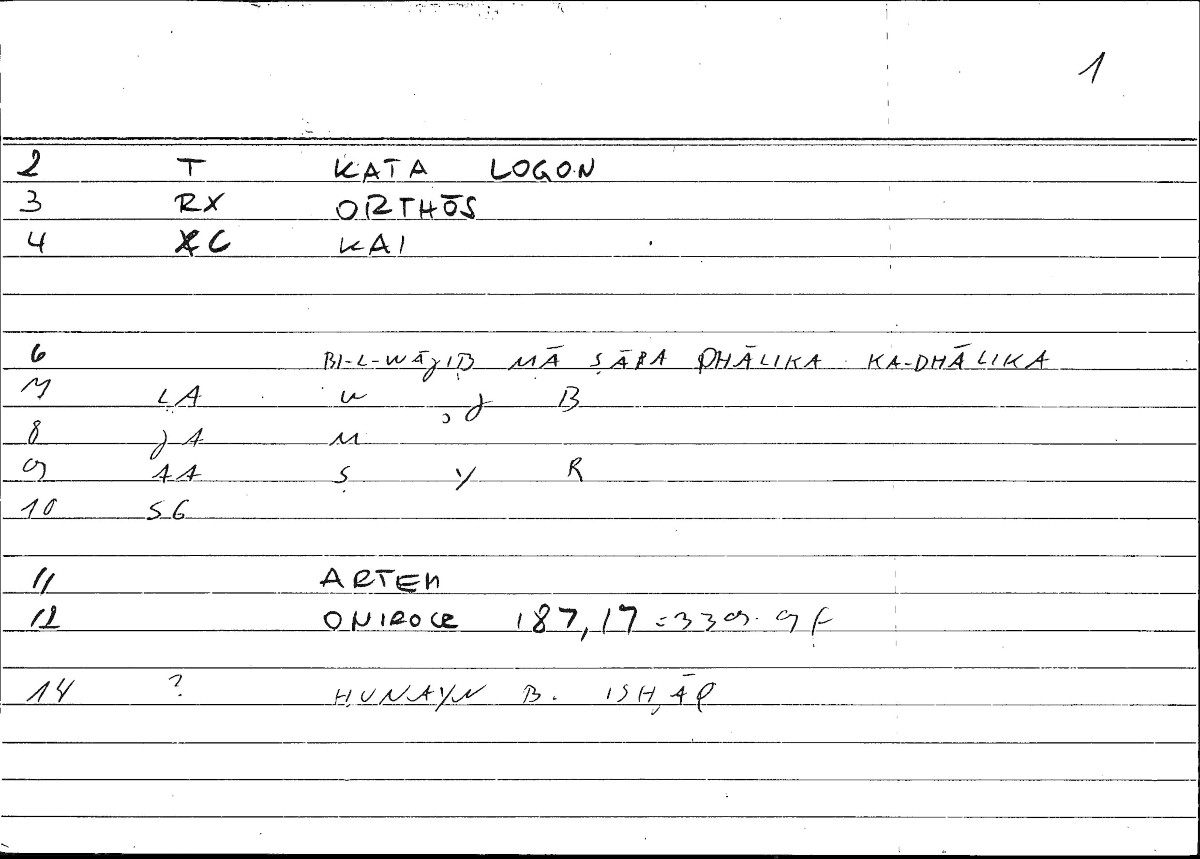 1
2 T KATA LOGON
3 RX ORTHŌS
4 XC KAI
6 BI-L-WĀJIB MĀ ṢĀRA DHĀLIKA KA-DHĀLIKA
7 LA W , J B
8 JA M
9 AA Ṣ Y R
10 SG
11 ARTEM
12 ONIROCR 187,17 = 339.9 f
14 ? ḤUNAYN B. ISḤĀQ